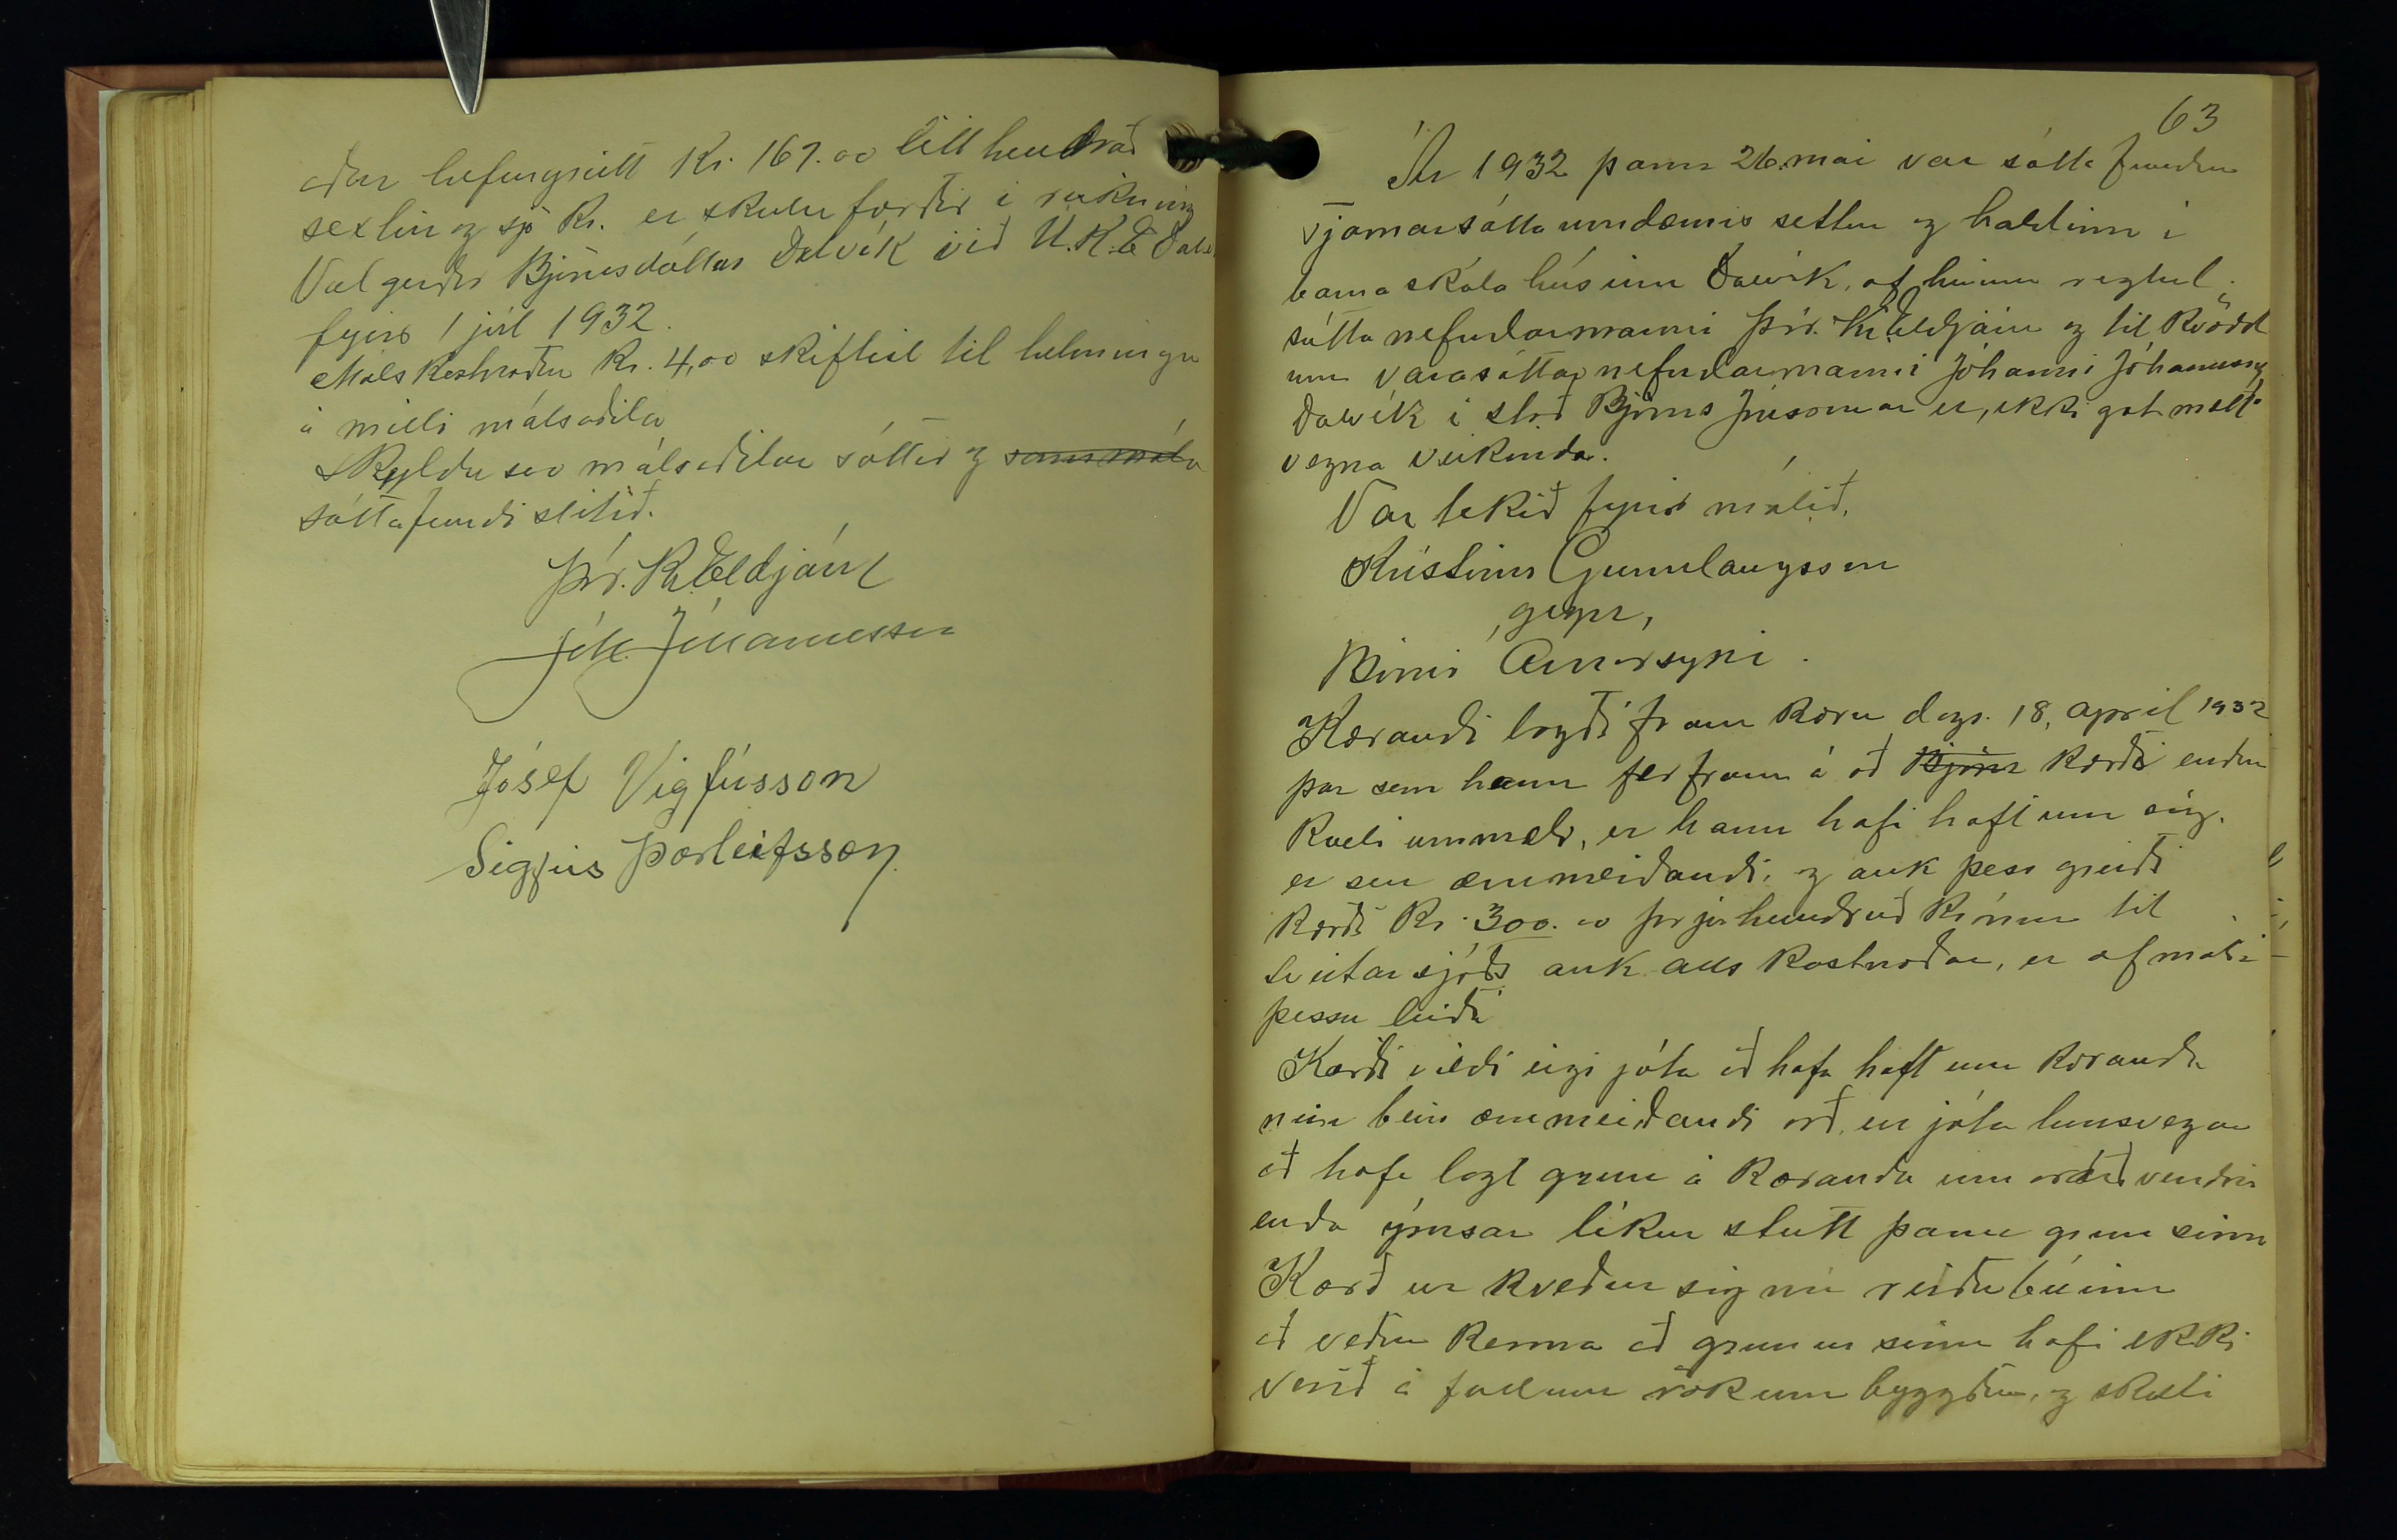 aðar hefur greitt Kr. 167.00 eitt hundrað
sextíu og sjö Kr. er skulu færðir í reikning
Valgerðar Björnsdóttur Dalvík við Ú.K.E Dalv.
fyrir 1 júl 1932.
Málskostnaður Kr. 4,00 skiftist til helminga
á milli málsaðila
Skyldu svo málsaðilar sáttir og sammála
sáttafundi slitið.
Þór. Kr. Eldjárn
Jóh. Jóhannesson
Jósef Vigfússon
Sigfús Þorleifsson
63
Ár 1932 þann 26. mai var sátta fundur
Tjarnarsáttaumdæmis settur og haldinn í
barnaskólahúsinu Dalvík, af hinum reglul.
sáttanefndarmanni Þór. Kr. Eldjárn og til kvödd
um varasáttanefndarmanni Jóhanni Jóhannssyni
Dalvík í stað Björns Jónssonar er, ekki gat mætt
vegna veikinda.
Var tekið fyrir málið,
Kristinn Gunnlaugsson
gegn,
Birni Arnarsyni.
Kærandi lagði fram kæru dags. 18, april 1932
þar sem hann fer fram á að Björn Kærði endur
kalli ummæli, er hann hafi haft um sig.
er séu ærumeiðandi, og auk þess greiði
Kærði Kr. 300.00 þrjúhundruð krónur til
sveitarsjóðs auk alls kostnaðar, er af máli
þessu leiða
Kærði vildi eigi játa að hafa haft um Kæranda
nein bein ærumeiðandi orð, en játa hinsvegar
að hafa lagt grun á Kæranda um
enda ýmsar líkur stutt þann grun sinn
Kærður kveður sig nú reiðubúinn
að viðurkenna að grunur sinn hafi ekki
verið á fullum rökum bygðum, og skuli